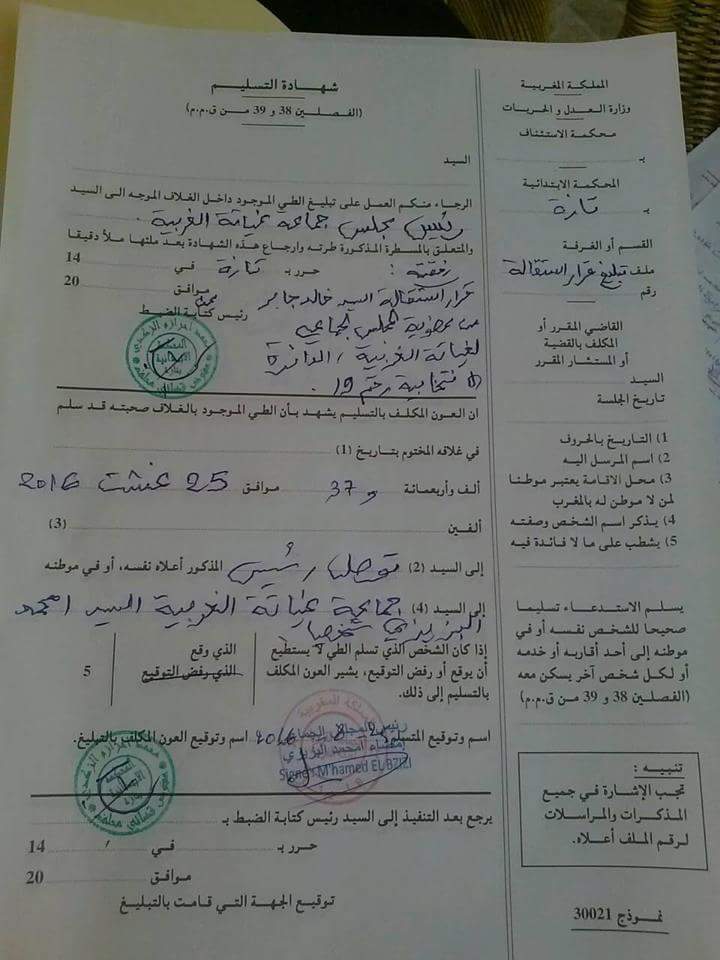 المملكة المغربية
وزارة العدل و الحريات
محكمة الاستئناف
بـ
المحكمة الابتدائية
بـ تازة
القسم أو الغرفة
ملف تبليغ قرار استقالة
رقم
القاضي المقرر أو
المكلف بالقضية
أو المستشار المقرر
السيد
تاريخ الجلسة
1) التاريخ بالحروف
2) اسم المرسل اليه
3) محل الاقامة يعتبر موطنا
لمن لا موطن له بالمغرب
4) يذكر اسم الشخص وصفته
5) يشطب على ما لا فائدة فيه
يسلم الاستدعاء تسليما
صحيحا للشخص نفسه أو في
موطنه إلى أحد أقاربه أو خدمه
أو لكل شخص آخر يسكن معه
(الفصلين 38 و 39 من ق.م.م)
تنبيه :
تجب الإشارة في جميع
المذكرات والمراسلات
لرقم الملف أعلاه.
نموذج 30021
شهادة التسليم
(الفصلين 38 و 39 من ق.م.م)
السيد
الرجاء منكم العمل على تبليغ الطي الموجود داخل الغلاف الموجه الى السيد
رئيس مجلس جماعة غياتة الغربية .
والمتعلق بالمسطرة المذكورة طرته وإرجاع هذه الشهادة بعد ملئها ملأ دقيقا
رفقته : حرر بـ تازة في 14
موافق 20
قرار استقالة السيد خالد جابر
رئيس كتابة الضبط
من عضوية المجلس الجماعي
لغياتة الغربية / الدائرة
الانتخابية رقم 19 .
ان العون المكلف بالتسليم يشهد بأن الطي الموجود بالغلاف صحبته قد سلم
في غلافه المختوم بتاريخ (1)
ألف وأربعمائة و 37 موافق 25 غشت 2016
ألفين (3)
إلى السيد (2) توصلنا رئيس المذكور أعلاه نفسه، أو في موطنه
إلى السيد (4) جماعة غياتة الغربية السيد امحمد
البزيزي شخصيا
إذا كان الشخص الذي تسلم الطي لا يستطيع
أن يوقع أو رفض التوقيع، يشير العون المكلف
بالتسليم إلى ذلك.
الذي وقع
الذي رفض التوقيع
5
اسم وتوقيع المتسلم 2016 8 25 اسم وتوقيع العون المكلف بالتبليغ.
رئيس المجلس الجماعي
إمضاء امحمد البزيزي
Signé M'hamed EL BZIZI
يرجع بعد التنفيذ إلى السيد رئيس كتابة الضبط بـ
حرر بـ في 14
موافق 20
توقيع الجهة التي قامت بالتبليغ